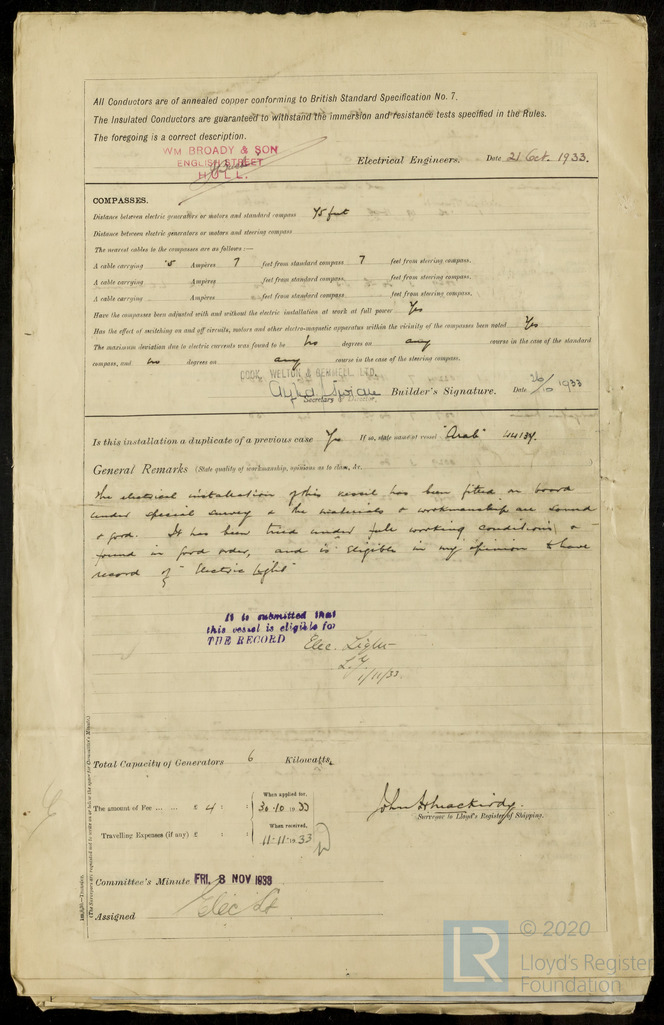 All Conductors are of annealed copper conforming to British Standard Specification No. 7.
The Insulated Conductors are guaranteed to withstand the immersion and resistance tests specified in the Rules.
The foregoing is a correct description.
WM BROADY & SON
ENGLISH STREET
HULL.
Electrical Engineers. Date 21 Oct. 1933.
COMPASSES.
Distance between electric generators or motors and standard compass 45 feet
Distance between electric generators or motors and steering compass
The nearest cables to the compasses are as follows :—
A cable carrying .5 Ampères 7 feet from standard compass 7 feet from steering compass.
A cable carrying Ampères feet from standard compass feet from steering compass.
A cable carrying Ampères feet from standard compass feet from steering compass.
Have the compasses been adjusted with and without the electric installation at work at full power Yes
Has the effect of switching on and off circuits, motors and other electro-magnetic apparatus within the vicinity of the compasses been noted Yes
The maximum deviation due to electric currents was found to be no degrees on any course in the case of the standard
compass, and no degrees on any course in the case of the steering compass.
COOK, WELTON & GEMMELL, LTD.
Secretary Director. Builder's Signature. Date 26/10 1933
Is this installation a duplicate of a previous case Yes If so, state name of vessel "Arab" 44134.
General Remarks (State quality of workmanship, opinions as to class, &c.
The electrical installation of this vessel has been fitted on board
under special survey & the materials & workmanship are sound
& good. It has been tried under full working conditions &
found in good order, and is eligible in my opinion to have
record of "Electric Light"
It is submitted that
this vessel is eligible for
THE RECORD Elec. Light
1/11/33.
Total Capacity of Generators 6 Kilowatts.
The amount of Fee ... ... £ 4 : :
When applied for,
30.10.1933
Travelling Expenses (if any) £ : :
When received,
11-11-1933
Surveyor to Lloyd's Register of Shipping.
Committee's Minute FRI. 3 NOV 1933
Assigned Elec Lt
(The Surveyors are requested not to write on or below the space for Committee's Minute.)
© 2020
LR
Lloyd's Register
Foundation